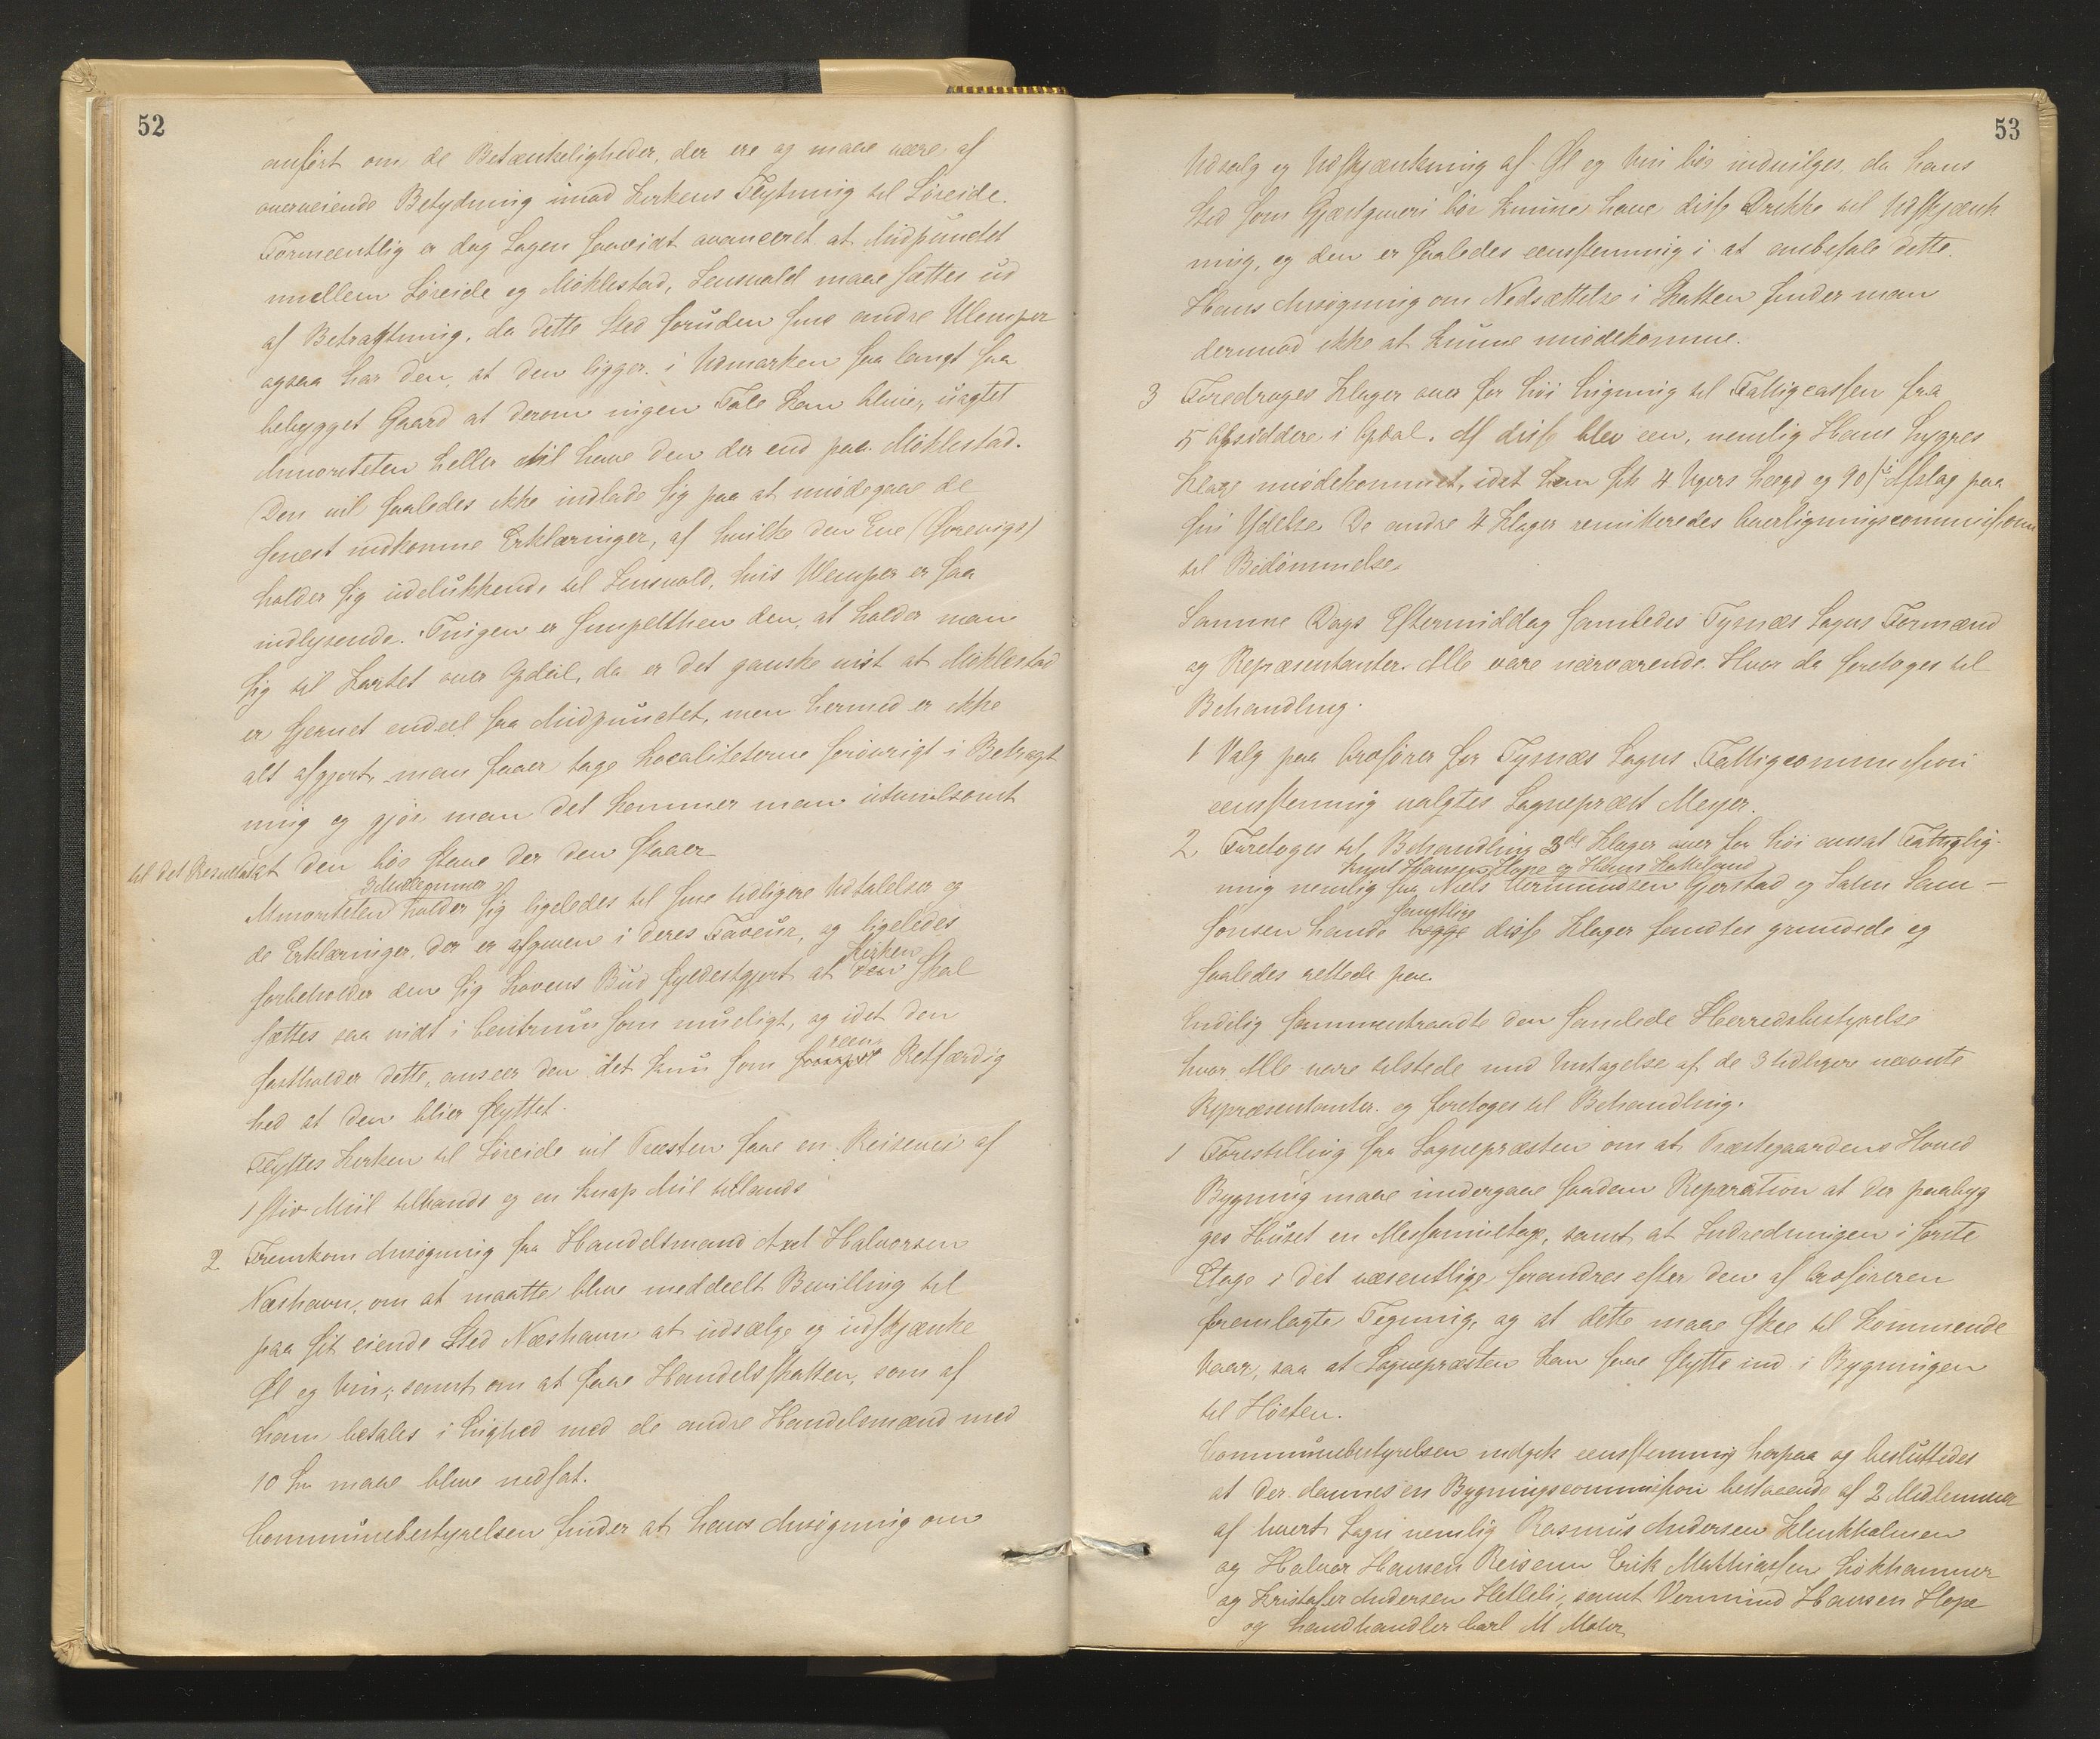 52
anført om de Betænkeligheder, der ere og maae være af
overveiende Betydning imod Kirkens Flytning til Løreide.
Formeentlig er dog Sagen saavidt avanceret at Midpunctet
mellem Løreide og Møklestad, Lensvold maae sættes ud
af Betragtning, da dette Sted foruden sine andre Ulemper
ogsaa har den, at den ligger i Udmarken saa langt fra
bebygget Gaard at derom ingen Tale kan blive, uagtet
Minoriteten heller vil have den der end paa Møklestad.
Den vil saaledes ikke indlade sig paa at imødegaae de
senest indkomne Erklæringer, af hvilke den Ene (Gjrevigs)
holder sig udelukkende til Lensvold, hvis Ulemper er saa
indlysende. Tingen er simpelthen den, at holder man
sig til Kartet over Opdal, da er det ganske vist at Møklestad
er fjernet endeel fra Midpunctet, men hermed er ikke
alt afgjort, man faaer tage Localiteterne forøvrigt i Betragt
ning og gjør man det kommer man utvivlsomt
til det Resultat at den bør staae der den staaer
3 Medlemmer
Minoriteten holder sig ligeledes til sine tidligere Udtalelser og
de Erklæringer, der er afgivne i deres Faveur, og ligeledes
Kirken
forbeholder den sig Lovens Bud fyldestgjort at den skal
sættes saa vidt i Centrum som mueligt, og idet den
reen
fastholder dette, anseer den det kun som Retfærdig
hed at den bliver flyttet.
Flyttes Kirken til Løreide vil Præsten faae en Reisevei af
1 stiv Miil tilvands og en knap Miil tillands
2 Fremkom Ansøgning fra Handelsmand Axel Halvorsen
Næshavn, om at maatte blive meddeelt Bevilling til
paa sit eiende Sted Næshavn at udsælge og udskjænke
Øl og Vin, samt om at faae Handelsskatten, som af
ham betales i Lighed med de andre Handelsmænd med
10 Kr maae blive nedsat.
Communebestyrelsen finder at hans Ansøgning om
53
Udsalg og Udskjænkning af Øl og Vin bør indvilges, da hans
Sted som Gjæstgiveri bør kunne have disse Drikke til Udskjænk
ning, og den er saaledes eensstemmig i at anbefale dette.
Hans Ansøgning om Nedsættelse i Skatten finder man
derimod ikke at kunne imødekomme.
3 Foredroges Klager over for høi Ligning til Fattigcassen fra
5 Opsiddere i Opdal. Af disse blev een, nemlig Hans Lygres
Klage imødekommet, idet han fik 4 Ugers Lægd og 90 Afslag paa
sin Ydelse. De andre 4 Klager remitteredes Overligningscommissionen
til Bedømmelse.
Samme Dags Eftermiddag samledes Tysnæs Sogns Formænd
og Repræsentanter. Alle vare nærværende. Hvor da foretoges til
Behandling.
1 Valg paa Ordfører for Tysnæs Sogns Fattigcommission
eensstemmig valgtes Sognepræst Meyer.
2. Foretoges til Behandling 3de Klager over for høi ansat Fattiglig-
Knut Hansen Hope og Hans Hatteland
ning nemlig fra Niels Vermundsen Gjerstad og Salm Sam-
samtlige
sonsen Lande begge disse Klager fandtes grundede og
saaledes rettede paa.
Endelig sammentraadte den samlede Herredsbestyrelse
hvor Alle vare tilstede med Undtagelse af de 3 tidligere nævnte
Repræsentanter. og foretoges til Behandling.
1 Forestilling fra Sognepræsten om at Præstegaardens Hoved
Bygning maae undergaae saadan Reparation at der paabyg
ges Huset en Messaninetage, samt at Indredningen i første
Etage i det væsentlige forandres efter den af Ordføreren
fremlagte Tegning, og at dette maae skee til kommende
Vaar, saa at Sognepræsten kan faae flytte ind i Bygningen
til Høsten.
Communebestyrelsen indgik eensstemmig herpaa og besluttedes
at der dannes en Bygningscommission bestaaende af 2 Medlemmer
af hvert Sogn nemlig Rasmus Andersen Klinkholmen
og Halvor Hansen Reisem Erik Mathiassen Løkhammer
og Kristofer Andersen Hetleli, samt Vermund Hansen Hope
og Landhandler Carl M Mohr